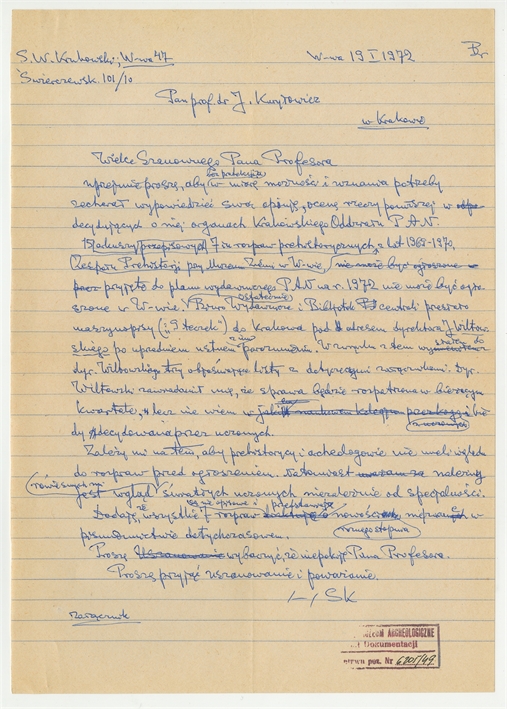 S. W. Krukowski, W-wa 47
Świerczewsk. 101/10
W-wa 19 I 1972
Pan prof. dr J. Kuryłowicz
w Krakowie
Wielce Szanownego Pana Profesora
uprzejmie proszę, aby w miarę możności i uznania potrzeby
zechciał wypowiedzieć swą opinję, ocenę rzeczy poniższej w
decydujących o niej organach Krakowskiego Oddziału P.A.N.
15 arkuszy przepisowych 7 rozpraw prehistorycznych z lat 1968-1970,
Zespołu Prehistorji przy Muzeum Ziemi w W-wie, nie może być ogłoszone
przyjęte do planu wydawniczego PAN na r. 1972 nie może być ogło-
szone w W-wie. Biuro Wydawnicze i Bibljotek centrali przesłało
ostatecznie
maszynopisy ("9 teczek") do Krakowa pod adresem dyrektora J. Wiltow-
skiego po uprzednim ustnem z nim porozumieniu. W związku z tem
dyr. Wiltowskiego trzy listy z dotyczącymi załącznikami. Dyr.
Wiltowski zawiadomił mię, że sprawa będzie rozpatrzona w bieżącym
kwartale, lecz nie wiem w jakiej
dy decydowana przez uczonych.
Zależy mi na tem, aby prehistorycy i archeologowie nie mieli wglądu
do rozpraw przed ogłoszeniem. Natomiast należny
jest wgląd światłych uczonych niezależnie od specjalności.
Dodaję, że wszystkie 7 rozpraw
piśmiennictwie dotychczasowem.
różnego stopnia
Proszę wybaczyć, że niepokoję Pana Profesora.
Proszę przyjąć uszanowanie i poważanie.
/-/ SK
załącznik
MUZEUM ARCHEOLOGICZNE
Dokumentacji
poz. Nr 6201/49